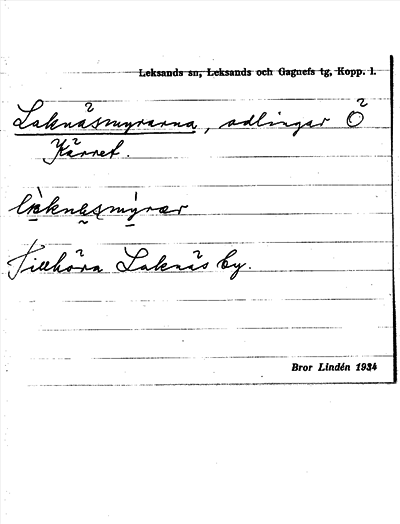 Leksands sn, Leksands och Gagnefs tg, Kopp. l.
Laknäsmyrarna, odlingar Ö
Kärret.
Tillhöra Laknäs by.
Bror Lindén 1934